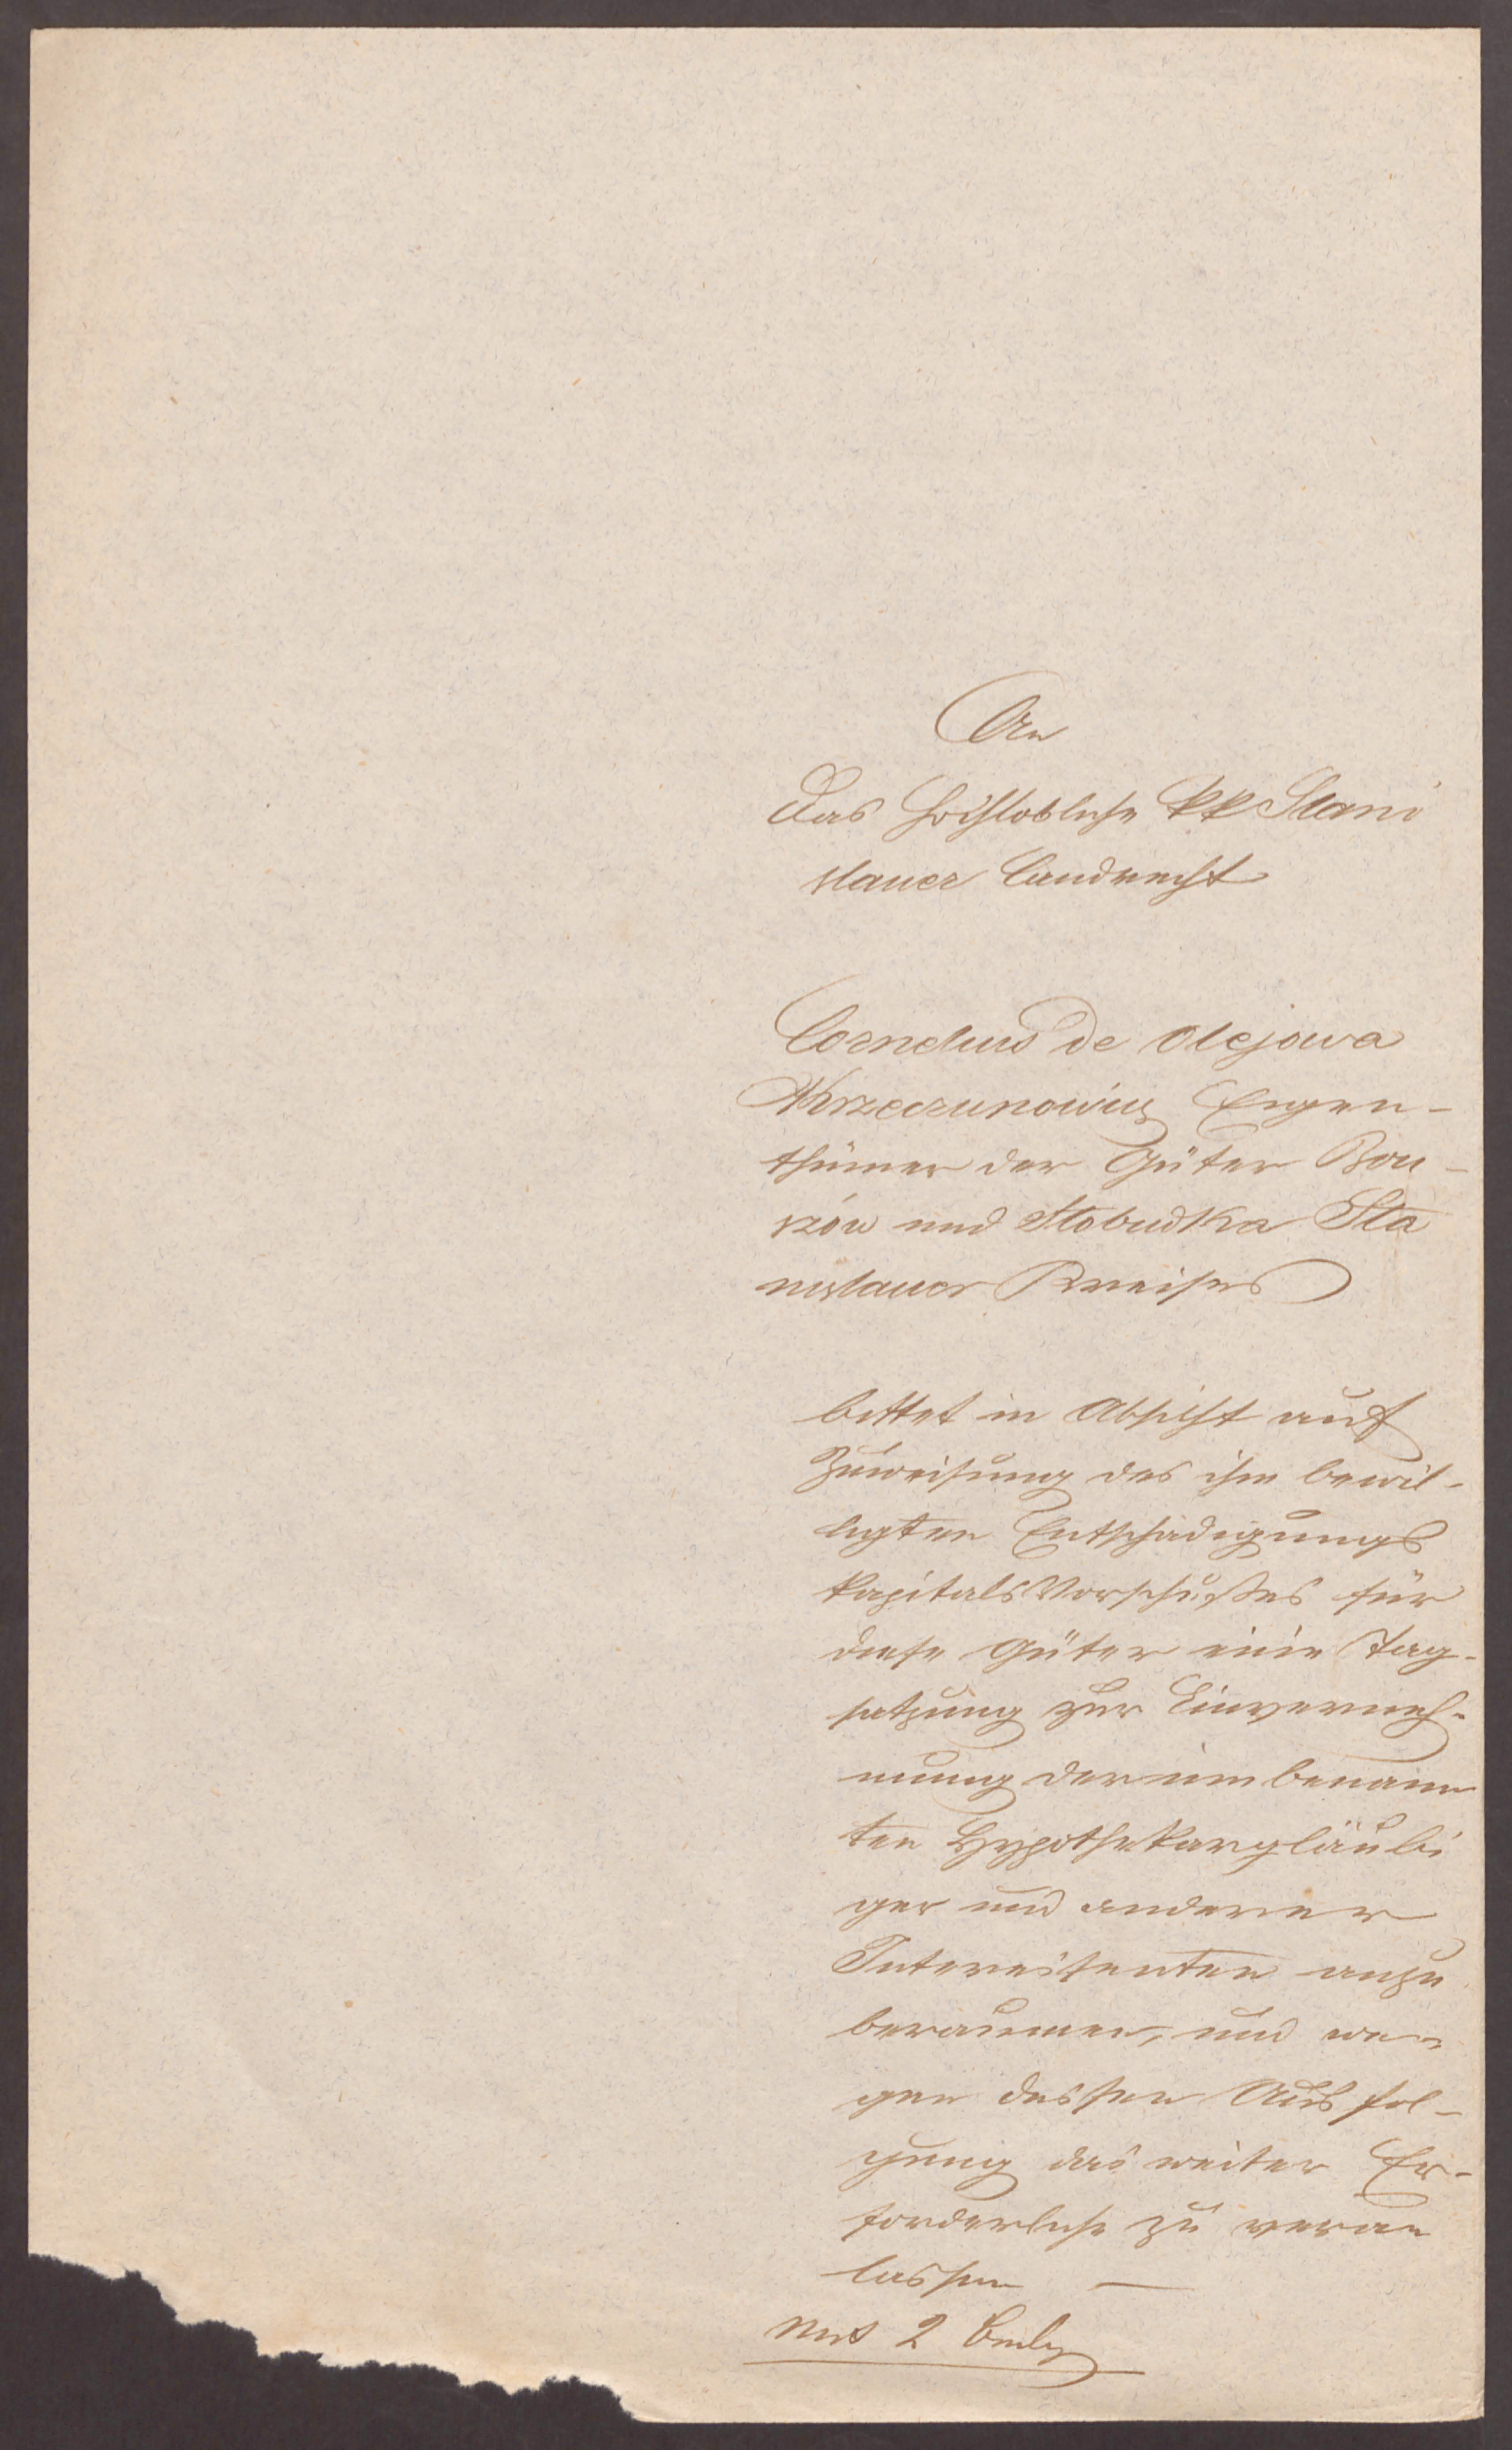 An
das hochlobliche kk Stani
slauer Landrecht
Cornelius de Olejowa
Krzeczunowicz Eigen-
thümer der Güter Bou-
rzów und Slobudka Sta
nislauer Kreises
bittet in Absicht auf
Zuweisung des ihm bewil-
ligten Entschädigungs
kapitals Vorschußes für
diese Güter eine Tag-
satzung zur Einverneh-
mung der im benann
ten Hypothekargläubi
ger und anderer
Interessenten anzu
beraumen, und we-
gen dessen Ausfol-
gung das weiter Er-
forderliche zu veran
lassen —
Mit 2 Beil